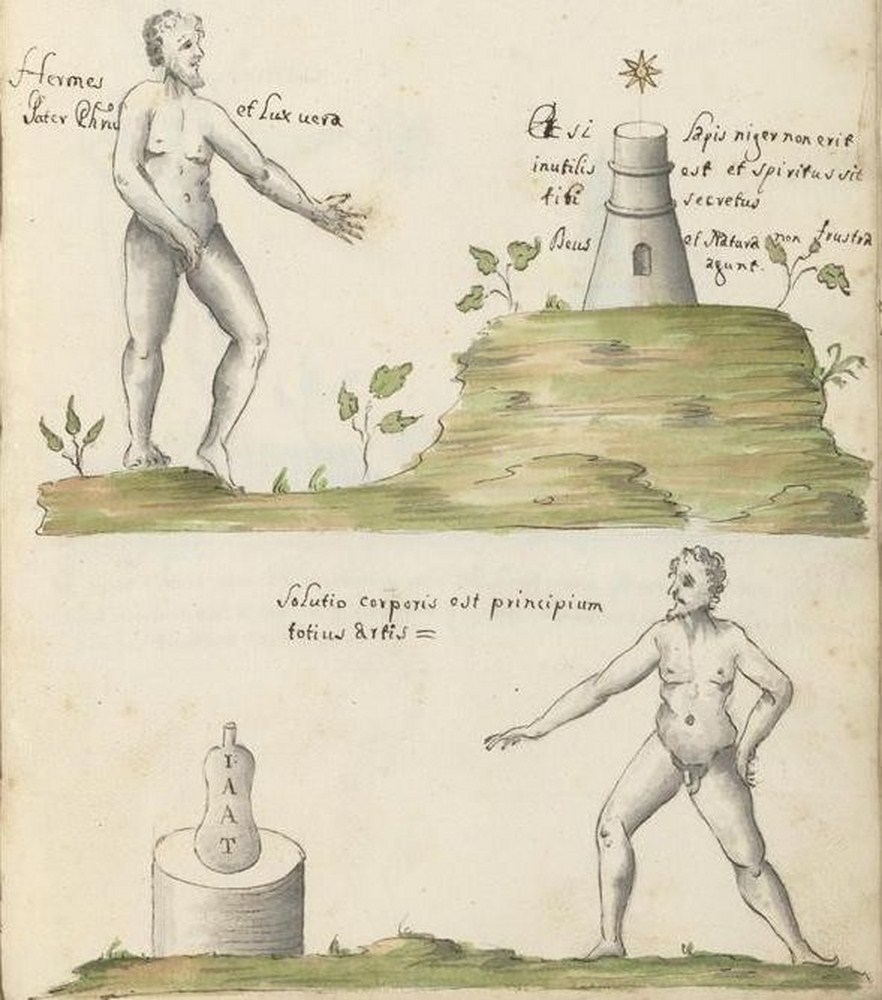 Hermes
Pater Phru
et Lux uera
si
Lapis niger non erit
inutilis
est et spiritus sit
tibi
secretus
Deus
et Natura non frustra
agunt.
Solutio corporis est principium
totius Artis =
I
A
A
T